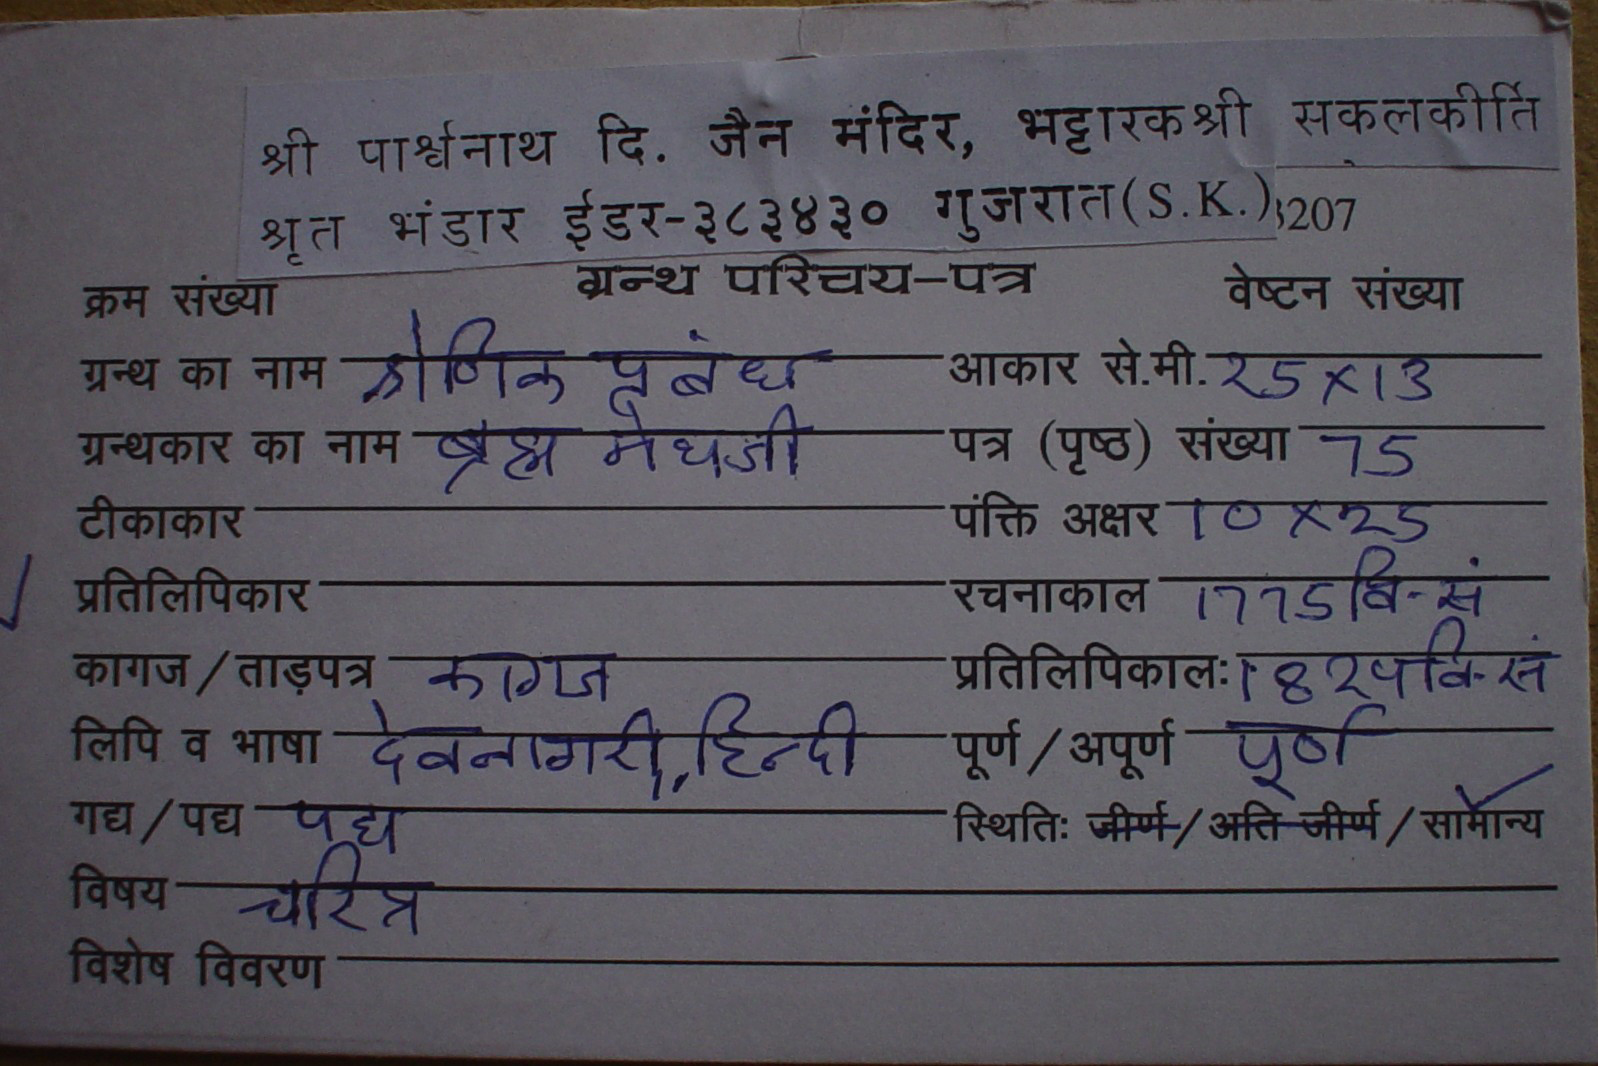 श्री पार्श्वनाथ दि. जैन मंदिर, भट्टारकश्री सकलकीर्ति
श्रृत भंडार ईडर-३८३४३० गुजरात(S.K.) 3207
क्रम संख्या ग्रन्थ परिचय-पत्र वेष्टन संख्या
ग्रन्थ का नाम श्रेणिक प्रबंध आकार से.मी. 25x13
ग्रन्थकार का नाम ब्रह्म मेघजी पत्र (पृष्ठ) संख्या 75
टीकाकार पंक्ति अक्षर 10x25
प्रतिलिपिकार रचनाकाल 1775 वि-सं
कागज/ताड़पत्र कागज प्रतिलिपिकालः 1824 वि-सं
लिपि व भाषा देवनागरी, हिन्दी पूर्ण/अपूर्ण पूर्ण
गद्य/पद्य पद्य स्थितिः जीर्ण/अति जीर्ण/सामान्य
विषय चरित्र
विशेष विवरण